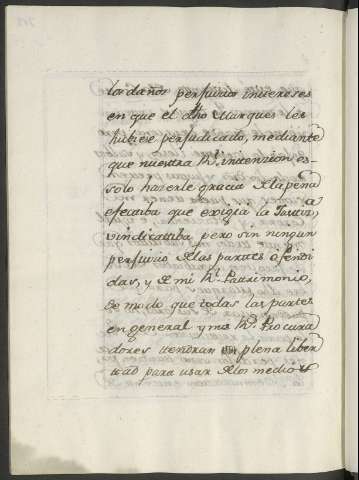 los daños perjuicios intereses
en que el dho Marques les
hubiese perjudicado, mediante
que nuestra Rl. intenzion es
solo hazerle gracia de la pena
efectiba que exigia la Justizia
vindicatiba pero sin ningun
perjuicio de las partes ofendi
das, y de mi Rl. Patrimonio,
de modo que todas las partes
en general y mis Rs. Procura
dores tendran en plena liber
tad para usar de los medios